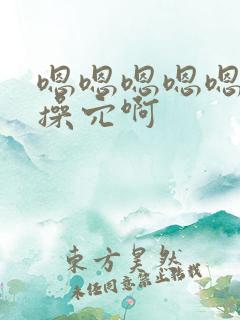 嗯嗯嗯嗯嗯
操穴啊
東方昊然
未经同意禁止转载